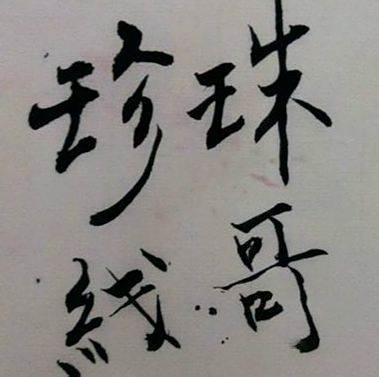 珠哥
珍綫